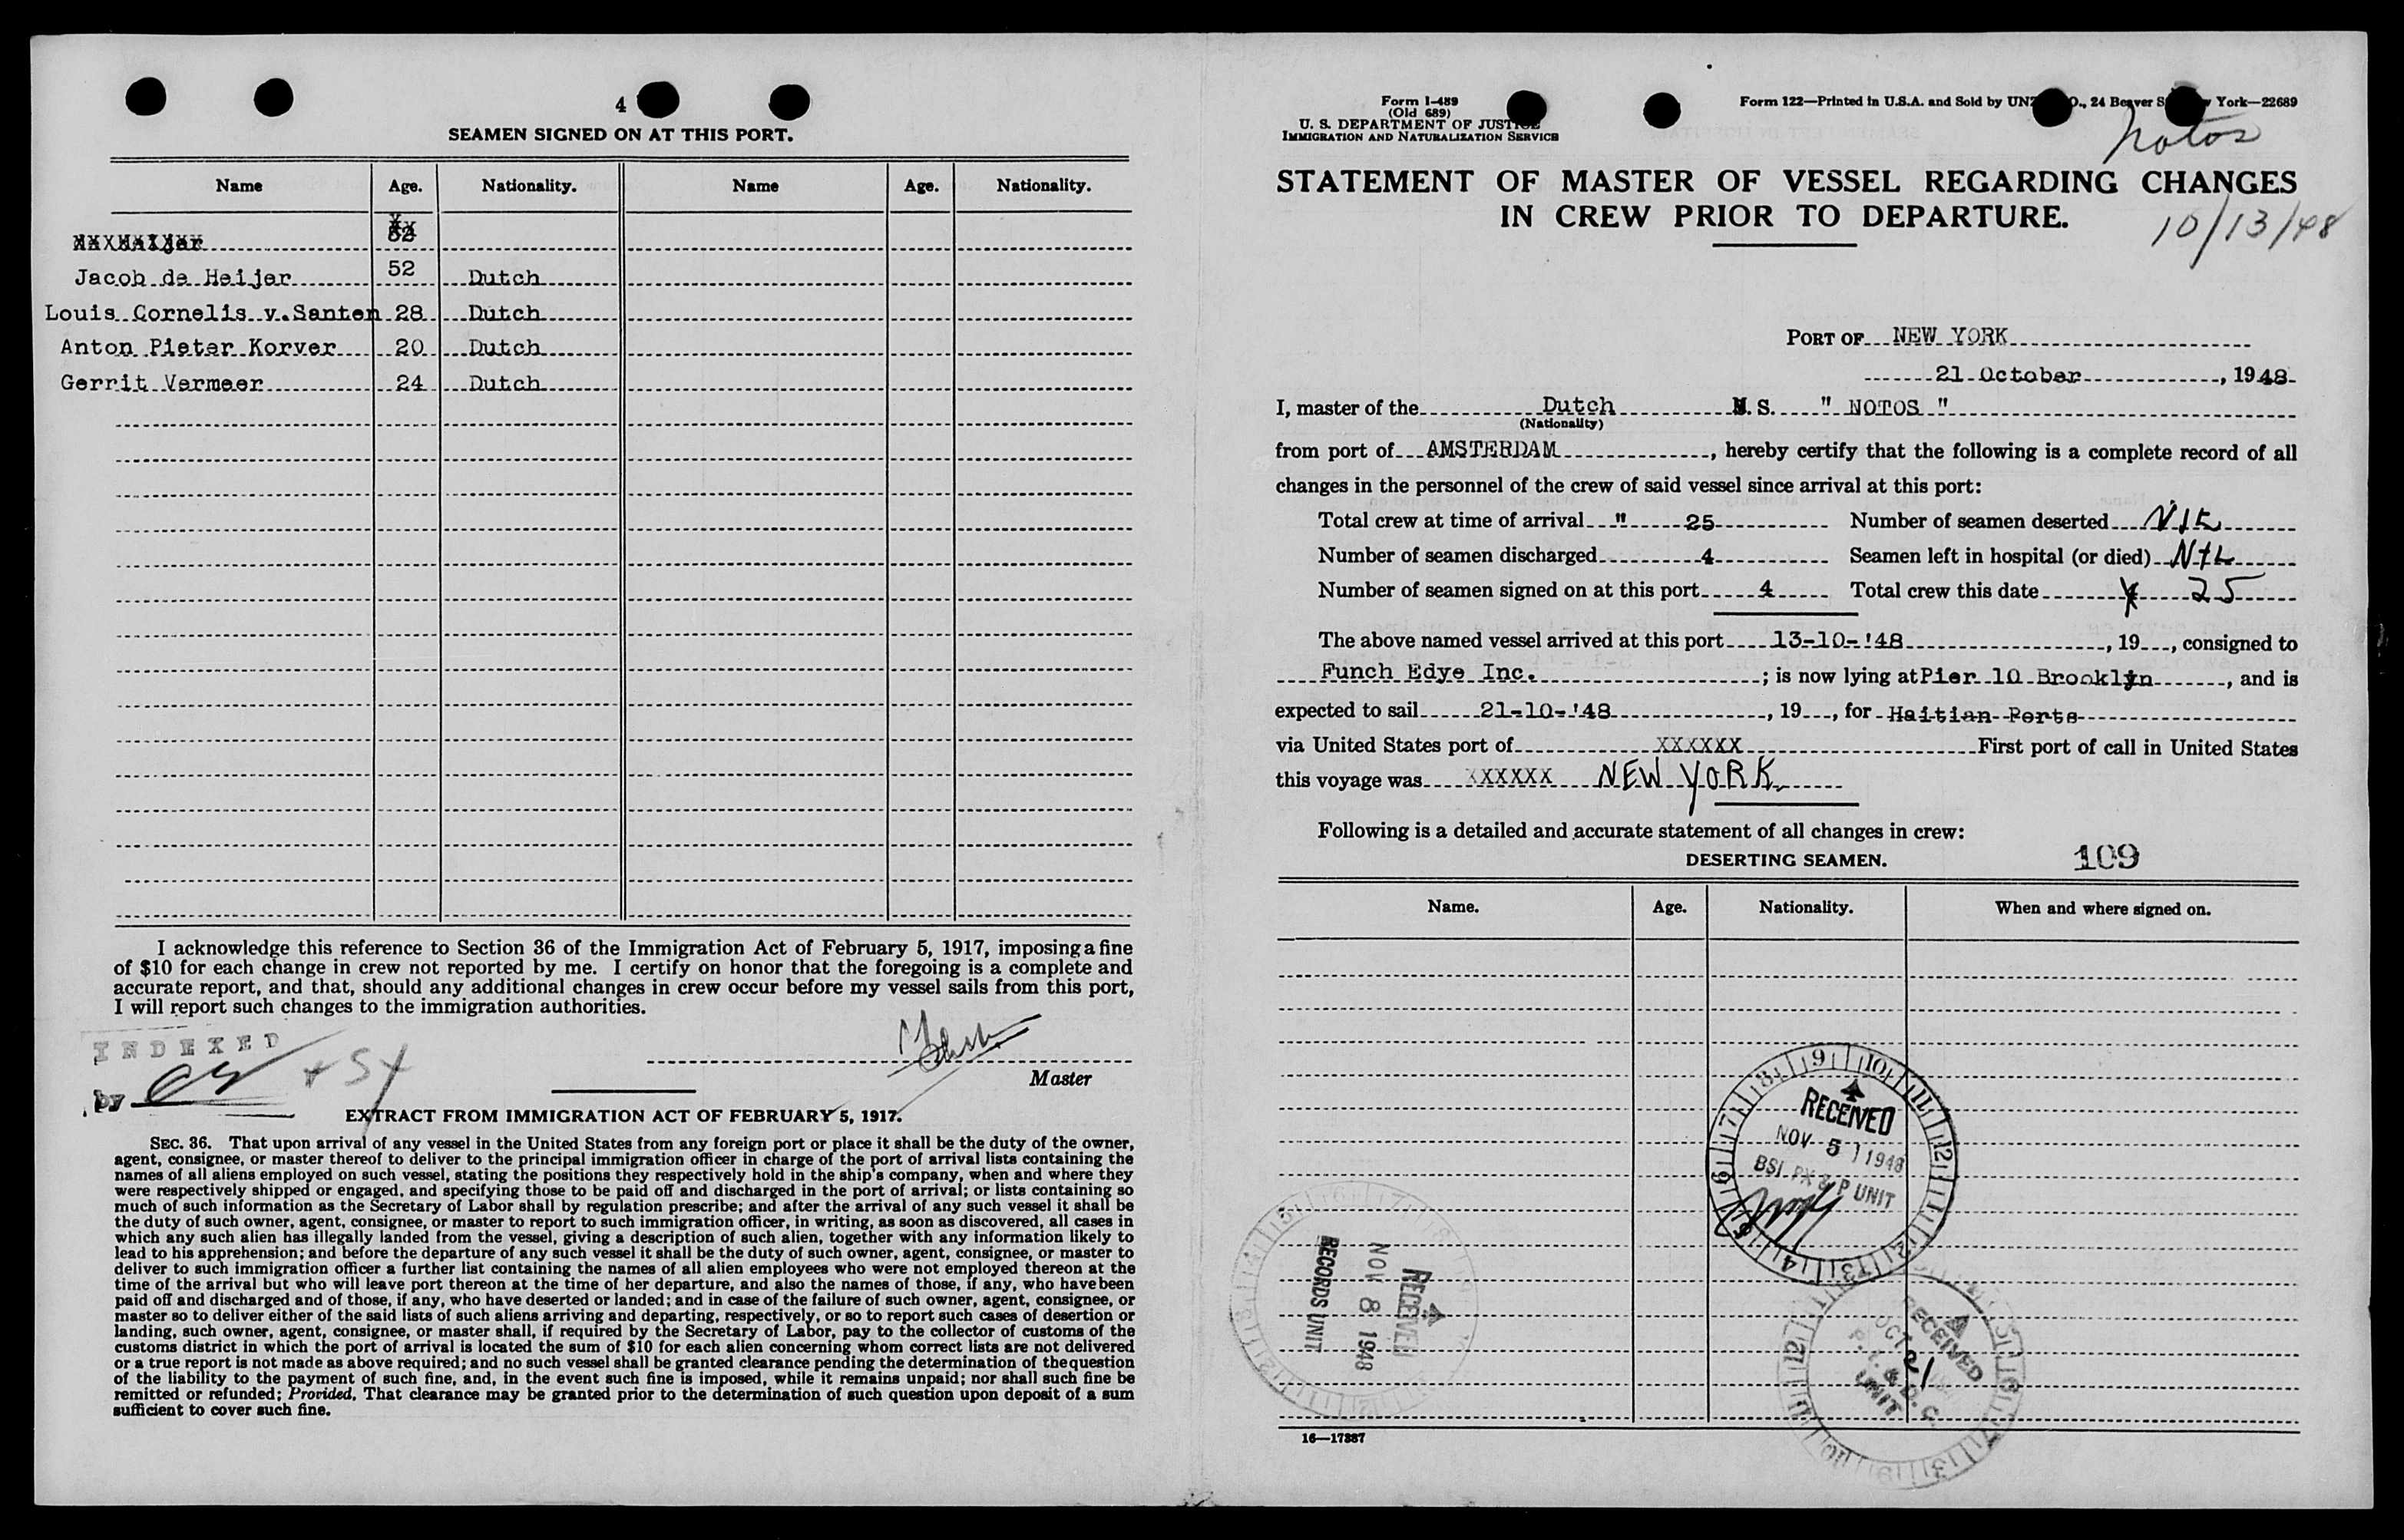 4
SEAMEN SIGNED ON AT THIS PORT.
Name Age. Nationality. Name Age. Nationality.
Jacob de Heijer 52 Dutch
Louis Cornelis v.Santen 28 Dutch
Anton Pieter Korver 20 Dutch
Gerrit Vermeer 24 Dutch
I acknowledge this reference to Section 36 of the Immigration Act of February 5, 1917, imposing a fine
of $10 for each change in crew not reported by me. I certify on honor that the foregoing is a complete and
accurate report, and that, should any additional changes in crew occur before my vessel sails from this port,
I will report such changes to the immigration authorities.
INDEXED
by
Master
EXTRACT FROM IMMIGRATION ACT OF FEBRUARY 5, 1917.
SEC. 36. That upon arrival of any vessel in the United States from any foreign port or place it shall be the duty of the owner,
agent, consignee, or master thereof to deliver to the principal immigration officer in charge of the port of arrival lists containing the
names of all aliens employed on such vessel, stating the positions they respectively hold in the ship's company, when and where they
were respectively shipped or engaged, and specifying those to be paid off and discharged in the port of arrival; or lists containing so
much of such information as the Secretary of Labor shall by regulation prescribe; and after the arrival of any such vessel it shall be
the duty of such owner, agent, consignee, or master to report to such immigration officer, in writing, as soon as discovered, all cases in
which any such alien has illegally landed from the vessel, giving a description of such alien, together with any information likely to
lead to his apprehension; and before the departure of any such vessel it shall be the duty of such owner, agent, consignee, or master to
deliver to such immigration officer a further list containing the names of all alien employees who were not employed thereon at the
time of the arrival but who will leave port thereon at the time of her departure, and also the names of those, if any, who have been
paid off and discharged and of those, if any, who have deserted or landed; and in case of the failure of such owner, agent, consignee, or
master so to deliver either of the said lists of such aliens arriving and departing, respectively, or so to report such cases of desertion or
landing, such owner, agent, consignee, or master shall, if required by the Secretary of Labor, pay to the collector of customs of the
customs district in which the port of arrival is located the sum of $10 for each alien concerning whom correct lists are not delivered
or a true report is not made as above required; and no such vessel shall be granted clearance pending the determination of the question
of the liability to the payment of such fine, and, in the event such fine is imposed, while it remains unpaid; nor shall such fine be
remitted or refunded: Provided, That clearance may be granted prior to the determination of such question upon deposit of a sum
sufficient to cover such fine.
Form I-489
(Old 689)
U. S. DEPARTMENT OF JUSTICE
IMMIGRATION AND NATURALIZATION SERVICE
Form 122—Printed in U.S.A. and Sold by UNZ O., 24 Beaver S York—22689
Notos
STATEMENT OF MASTER OF VESSEL REGARDING CHANGES
IN CREW PRIOR TO DEPARTURE.
10/13/48
PORT OF NEW YORK
21 October, 1948
I, master of the Dutch M. S. " NOTOS "
(Nationality)
from port of AMSTERDAM, hereby certify that the following is a complete record of all
changes in the personnel of the crew of said vessel since arrival at this port:
Total crew at time of arrival " 25 Number of seamen deserted NIL
Number of seamen discharged 4 Seamen left in hospital (or died) NIL
Number of seamen signed on at this port 4 Total crew this date 25
The above named vessel arrived at this port 13-10-'48, 19, consigned to
Funch Edye Inc.; is now lying at Pier 10 Brooklyn, and is
expected to sail 21-10-'48, 19, for Haitian Ports
via United States port of XXXXXX First port of call in United States
this voyage was XXXXXX NEW YORK
Following is a detailed and accurate statement of all changes in crew:
DESERTING SEAMEN. 109
Name. Age. Nationality. When and where signed on.
RECEIVED
NOV 5 1948
BSI PX & P UNIT
RECEIVED
NOV 8 1948
RECORDS UNIT
RECEIVED
OCT 21
UNIT
16—17387